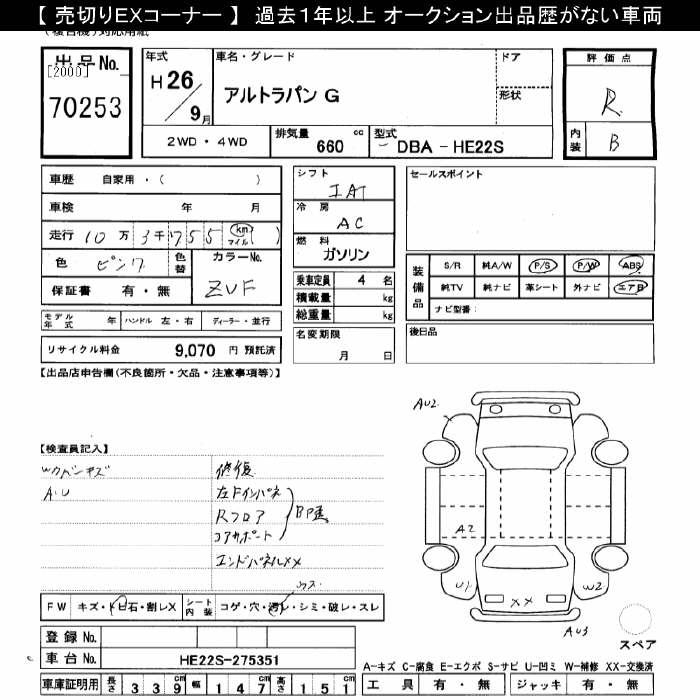 【 売切りEXコーナー 】 過去１年以上 オークション出品歴がない車両
出品No.
[2000]
70253
年式
H26/9月
車名・グレード
アルトラパン G
ドア
形状
2WD・4WD
排気量 660 cc
型式 DBA - HE22S
評価点
R
内装 B
車歴 自家用・( )
車検 年 月
走行 10万3千755 (km マイル)( )
色 ピンク
色替
カラーNo. ZVF
保証書 有・無
シフト IAT
冷房 AC
燃料 ガソリン
乗車定員 4 名
積載量 kg
総重量 kg
名変期限 月 日
セールスポイント
装備品
S/R 純A/W P/S P/W ABS
純TV 純ナビ 革シート 外ナビ エアB
ナビ型番:
後日品
モデル年式 年 ハンドル 左・右 ディーラー・並行
リサイクル料金 9,070 円 預託済
【出品店申告欄(不良箇所・欠品・注意事項等)】
【検査員記入】
Wカバーキズ
AU
修復
左Fインパネ
Rフロア
コアサポート
エンドパネルXX
FW キズ・トビ石・割レX
シート内装 コゲ・穴・汚レ・シミ・破レ・スレ
登録 No.
車台 No. HE22S-275351
車庫証明用 長さ 339cm 幅 147cm 高さ 151
AU2
A2
U1
W2
XX
AU3
スペア
A-キズ C-腐食 E-エクボ S-サビ U-凹ミ W-補修 XX-交換済
工具 有・無 ジャッキ 有・無